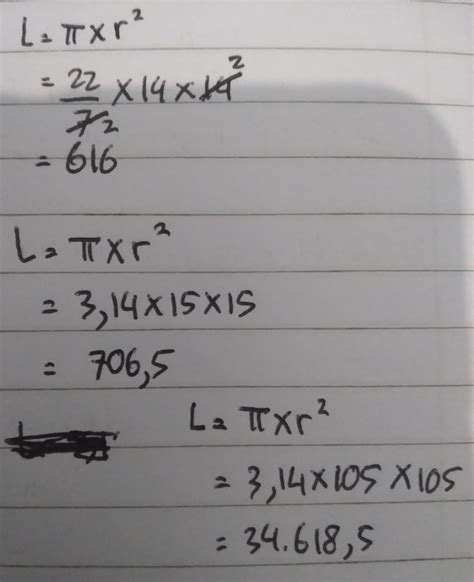 L = π x r²
= 22/7 2 x 14 x 14 2
= 616
L = π x r²
= 3,14 x 15 x 15
= 706,5
L = π x r²
= 3,14 x 105 x 105
= 34.618,5